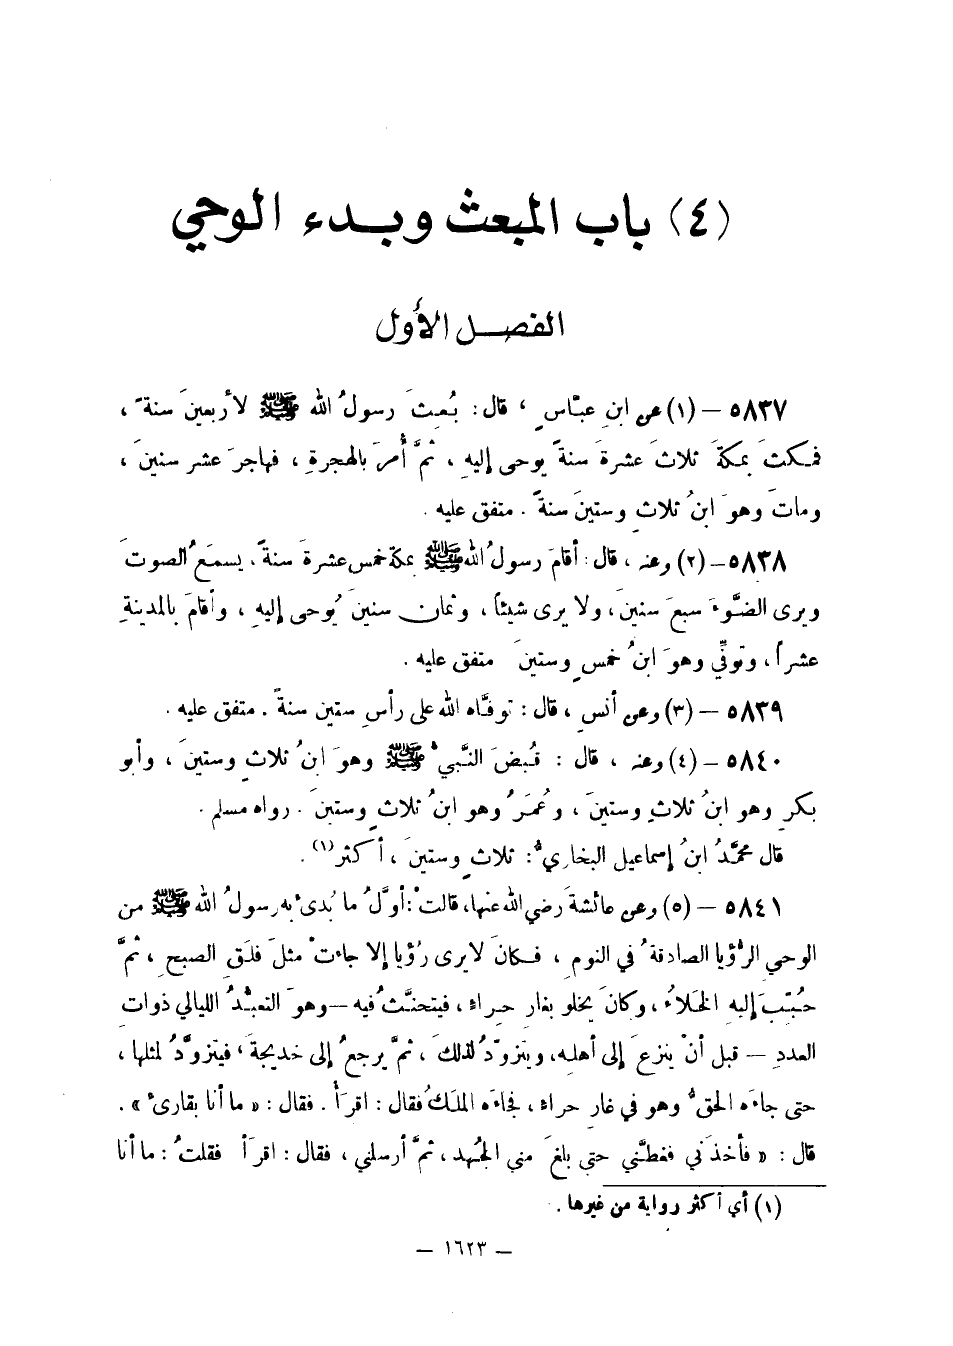 (٤) باب المبعث وبدء الوحي
الفصل الأول
٥٨٣٧ – (١) عن ابنِ عبّاسٍ ، قال: بُعِثَ رسولُ الله ﷺ لأربعينَ سنةً ،
فمكثَ بمكةَ ثلاثَ عشرةَ سنةً يوحى إليهِ ، ثمَّ أُمرَ بالهجرةِ ، فهاجرَ عشر سنينَ ،
وماتَ وهوَ ابنُ ثلاثٍ وستينَ سنةً . متفق عليه .
٥٨٣٨ – (٢) وعنه ، قال: أقامَ رسولُ الله ﷺ بمكة خمس عشرةَ سنةً ، يسمعُ الصوتَ
ويرى الضَّوءَ سبعَ سنينَ ، ولا يرى شيئاً ، وثمان سنينَ يُوحى إليهِ ، وأقامَ بالمدينةِ
عشراً ، وتوفّي وهوَ ابنُ خمسٍ وستينَ متفق عليه .
٥٨٣٩ – (٣) وعن أنسٍ ، قال: توفَّاه الله على رأسِ ستين سنةً . متفق عليه .
٥٨٤٠ – (٤) وعنه ، قال : قُبضَ النَّبيُّ ﷺ وهوَ ابنُ ثلاثٍ وستينَ ، وأبو
بكرٍ وهو ابنُ ثلاثٍ وستينَ ، وعُمَرُ وهو ابنُ ثلاثٍ وستينَ . رواه مسلم .
قال محمَّدُ ابنُ إسماعيل البخاريُّ : ثلاثٍ وستينَ ، أكثر(١) .
٥٨٤١ – (٥) وعن عائشةَ رضي الله عنها، قالتْ: أوَّلُ ما بُدىءَ به رسولُ الله ﷺ من
الوحي الرُّؤيا الصادقةُ في النومِ ، فكانَ لا يرى رُؤيا إلا جاءتْ مثلَ فلَقِ الصبحِ ، ثمَّ
حُبّبَ إليهِ الخلاءُ ، وكانَ يخلو بغارِ حِراءٍ ، فيتحنَّثُ فيه – وهوَ التعبُّدُ الليالي ذواتِ
العددِ – قبل أنْ ينزعَ إلى أهلهِ، ويتزوّدُ لذلكَ ، ثمَّ يرجعُ إلى خديجةَ ، فيتزوَّدُ لمثلها ،
حتى جاءَه الحقُّ وهو في غارِ حراءٍ ، فجاءَه الملَكُ فقال : اقرَأْ . فقال : « ما أنا بقارىءٍ » .
قال : « فأخذَني فغطَّني حتى بلغَ مني الجُهد ، ثمَّ أرسلني ، فقال : اقرَأْ فقلتُ : ما أنا
(١) أي أكثر رواية من غيرها .
– ١٦٢٣ –